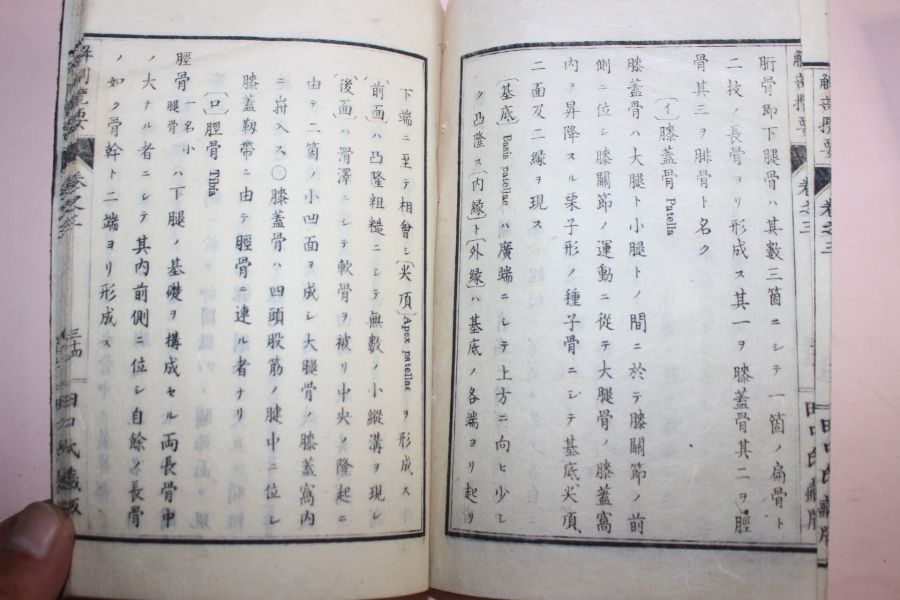 解剖攬要 卷之三
田口氏藏版
骭骨即下腿骨ハ其數三箇ニシテ一箇ノ扁骨ト
二枝ノ長骨ヨリ形成ス其一ヲ膝蓋骨其二ヲ脛
骨其三ヲ腓骨ト名ク
〔イ〕膝蓋骨 Patella
膝蓋骨ハ大腿ト小腿トノ間ニ於テ膝關節ノ前
側ニ位シ膝關節ノ運動ニ從テ大腿骨ノ膝蓋窩
內ヲ昇降スル栗子形ノ種子骨ニシテ基底、尖項、
二面及二緣ヲ現ス
〔基底〕Basis patellae ハ廣端ニシテ上方ニ向ヒ少シ
ク凸隆ス〔内緣〕ト〔外緣〕ハ基底ノ各端ヨリ起リ
下端ニ至テ相會シ〔尖項〕Apex patellae ヲ形成ス
〔前面〕ハ凸隆粗糙ニシテ無數ノ小縱溝ヲ現シ
〔後面〕ハ滑澤ニシテ軟骨ヲ被リ中央ノ隆起ニ
由テ二箇ノ小凹面ヲ成シ大腿骨ノ膝蓋窩内
ニ嵌入ス〇膝蓋骨ハ四頭股筋ノ腱中ニ位シ
膝蓋靱帶ニ由テ脛骨ニ連ル者ナリ
〔ロ〕脛骨 Tibia
脛骨 一名小腿骨 ハ下腿ノ基礎ヲ構成セル両長骨中
ノ大ナル者ニシテ其内前側ニ位シ自餘ノ長骨
ノ如ク骨幹ト二端ヨリ形成ス
解剖攬要 卷之三 三十四 田口氏藏版